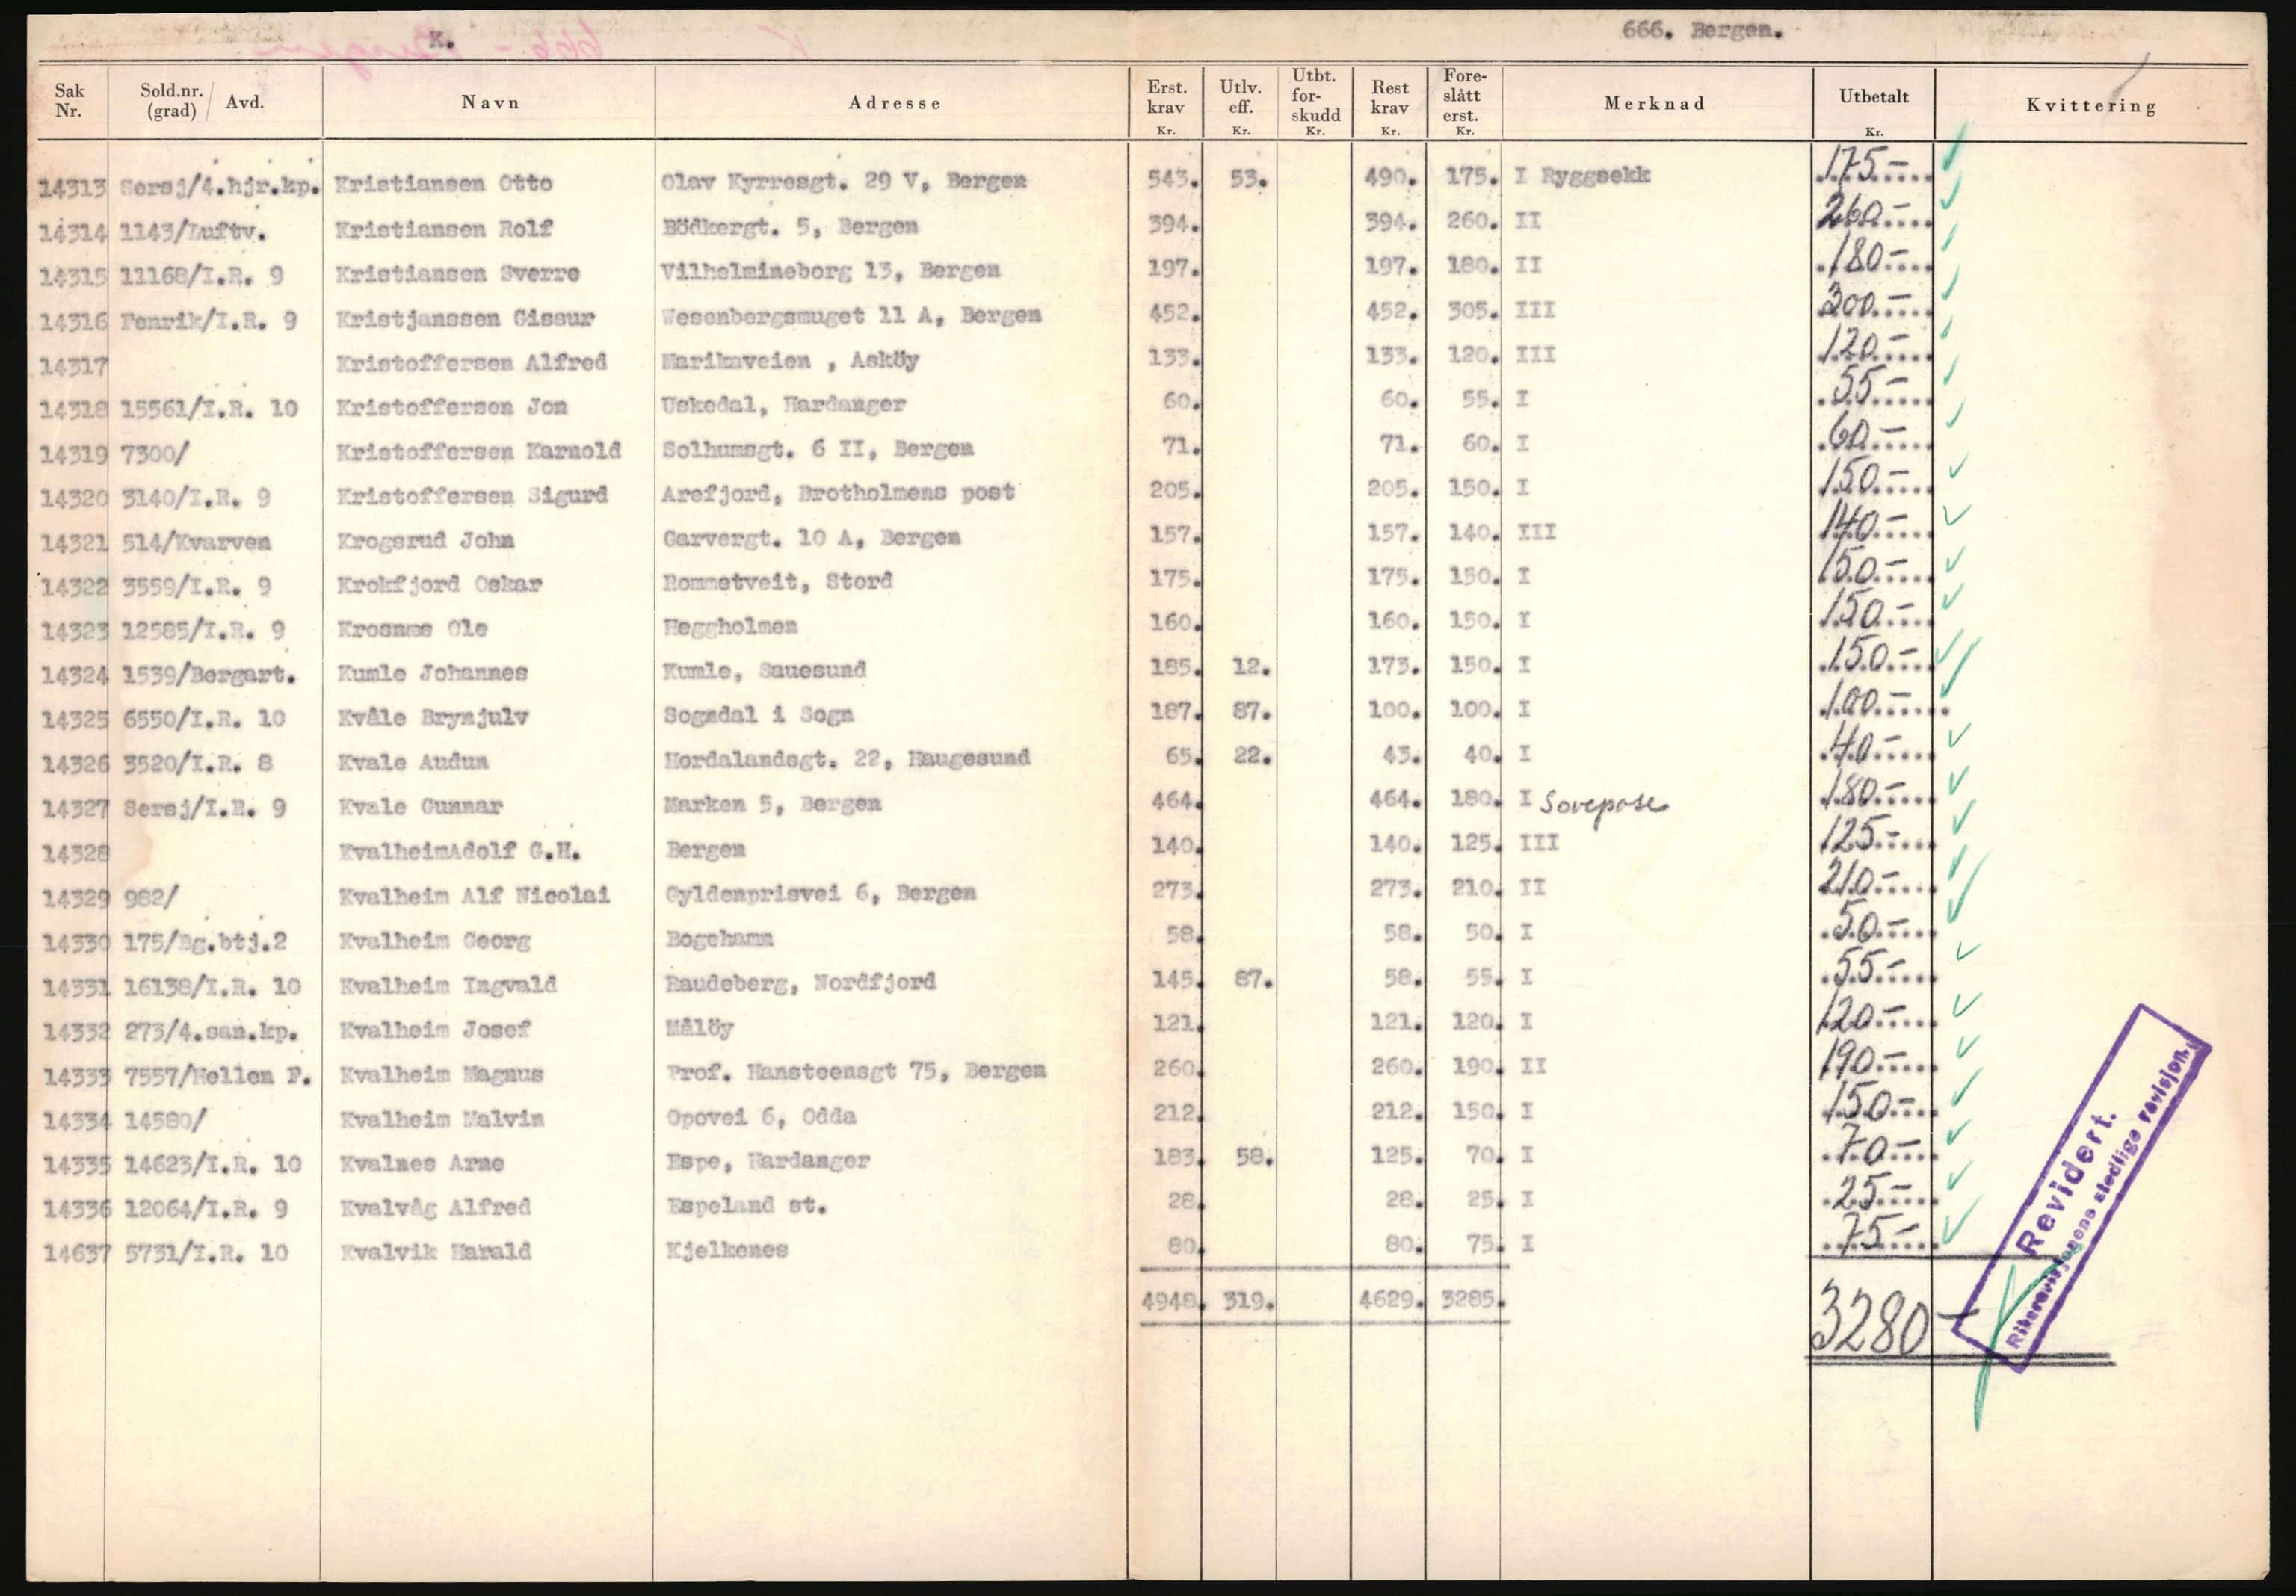 K. 666. Bergen.
Sak Nr. Sold.nr. (grad) / Avd. Navn Adresse Erst. krav Kr. Utlv. eff. Kr. Utbt. for- skudd Kr. Rest krav Kr. Fore- slått erst. Kr. Merknad Utbetalt Kr. Kvittering
14313 Sersj/4.hjr.kp. Kristiansen Otto Olav Kyrresgt. 29 V, Bergen 543. 53. 490. 175. I Ryggsekk 175-
14314 1143/Luftv. Kristiansen Rolf Bödkergt. 5, Bergen 394. 394. 260. II 260-
14315 11168/I.R. 9 Kristiansen Sverre Vilhelmineborg 13, Bergen 197. 197. 180. II 180-
14316 Fenrik/I.R. 9 Kristjanssen Gissur Wesenbergsmuget 11 A, Bergen 452. 452. 305. III 300-
14317 Kristoffersen Alfred Marikaveien , Asköy 133. 133. 120. III 120-
14318 15561/I.R. 10 Kristoffersen Jon Uskedal, Hardanger 60. 60. 55. I 55-
14319 7300/ Kristoffersen Karnold Solhumsgt. 6 II, Bergen 71. 71. 60. I 60-
14320 3140/I.R. 9 Kristoffersen Sigurd Arefjord, Brotholmens post 205. 205. 150. I 150-
14321 514/Kvarven Krogsrud John Garvergt. 10 A, Bergen 157. 157. 140. III 140-
14322 3559/I.R. 9 Krokfjord Oskar Rommetveit, Stord 175. 175. 150. I 150-
14323 12585/I.R. 9 Krosnæs Ole Heggholmen 160. 160. 150. I 150-
14324 1539/Bergart. Kumle Johannes Kumle, Sauesund 185. 12. 173. 150. I 150-
14325 6550/I.R. 10 Kvåle Brynjulv Sogndal i Sogn 187. 87. 100. 100. I 100-
14326 3520/I.R. 8 Kvale Audun Hordalandsgt. 22, Haugesund 65. 22. 43. 40. I 40-
14327 Sersj/I.R. 9 Kvale Gunnar Marken 5, Bergen 464. 464. 180. I Sovepose 180-
14328 KvalheimAdolf G.H. Bergen 140. 140. 125. III 125-
14329 982/ Kvalheim Alf Nicolai Gyldenprisvei 6, Bergen 273. 273. 210. II 210-
14330 175/Bg.btj.2 Kvalheim Georg Bogehamn 58. 58. 50. I 50-
14331 16138/I.R. 10 Kvalheim Ingvald Raudeberg, Nordfjord 145. 87. 58. 55. I 55-
14332 273/4.san.kp. Kvalheim Josef Målöy 121. 121. 120. I 120-
14333 7557/Hellen F. Kvalheim Magnus Prof. Hansteensgt 75, Bergen 260. 260. 190. II 190-
14334 14580/ Kvalheim Malvin Opovei 6, Odda 212. 212. 150. I 150-
14335 14623/I.R. 10 Kvalnes Arne Espe, Hardanger 183. 58. 125. 70. I 70-
14336 12064/I.R. 9 Kvalvåg Alfred Espeland st. 28. 28. 25. I 25-
14637 5731/I.R. 10 Kvalvik Harald Kjelkenes 80. 80. 75. I 75-
4948. 319. 4629. 3285. 3280-
Revidert.
Riksrevisjonens stedlige revisjon.